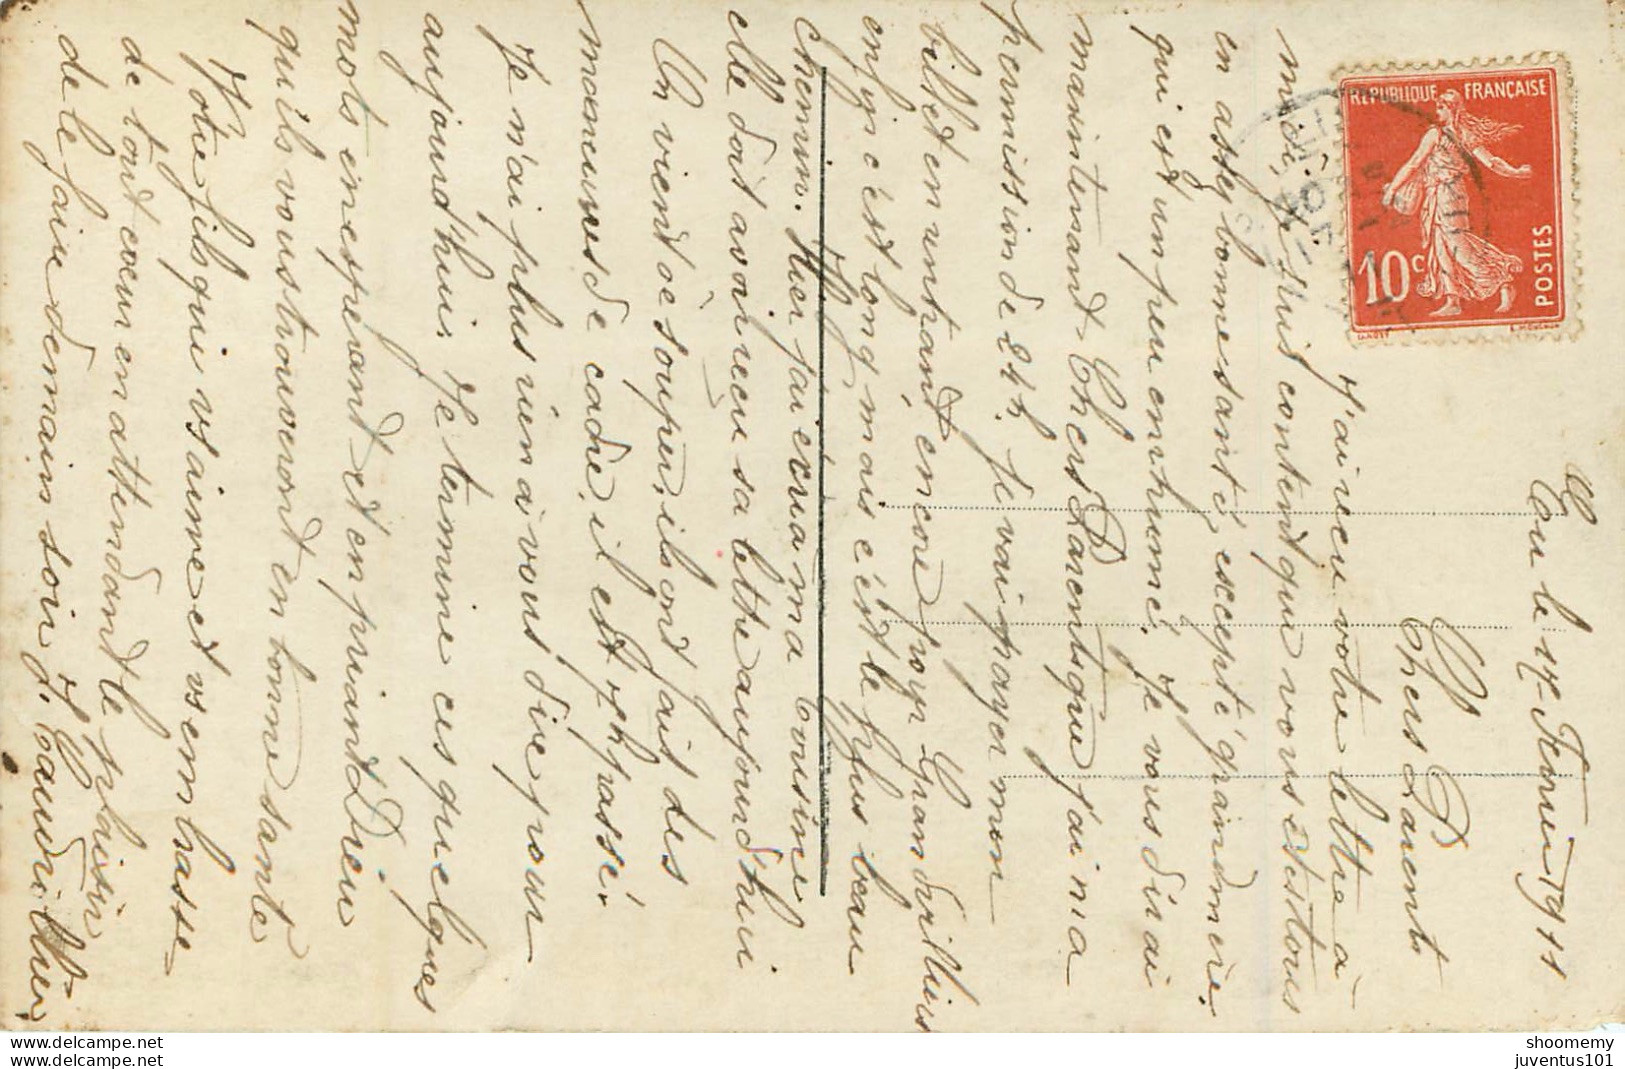 Tou le 17 Février 1911
Chers Parents
J'ai reçu votre lettre à
midi, je suis contend que vous etes tous
en assez bonne santé, excepté grandmère,
qui est un peu enrhumé. Je vous dirai
maintenant Chers Parents que j'ai ma
permission de 24h. Je vai payer mon
billet en entrand encore pour Grandvilliers
enfin c'est long mais c'ést le plus beau
Chemin. Hier j'ai ecri a ma Cousine
elle doit avoir reçu sa lettre aujourd'hui
On vient de souper, ils ont fait des
manoeuvres de cadre, il est 7h passé.
Je n'ai plus rien à vous dire pour
aujourd'hui. Je termine ces quelques
mots en esperand et en priand Dieu
qu'ils vous trouveront en bonne santé
Votre fils qui vs aime et vs embrasse
de tout coeur en attendand le plaisir
de le faire demain soir J. Baudrillier
REPUBLIQUE FRANÇAISE
10c
POSTES
shoomemy
juventus101